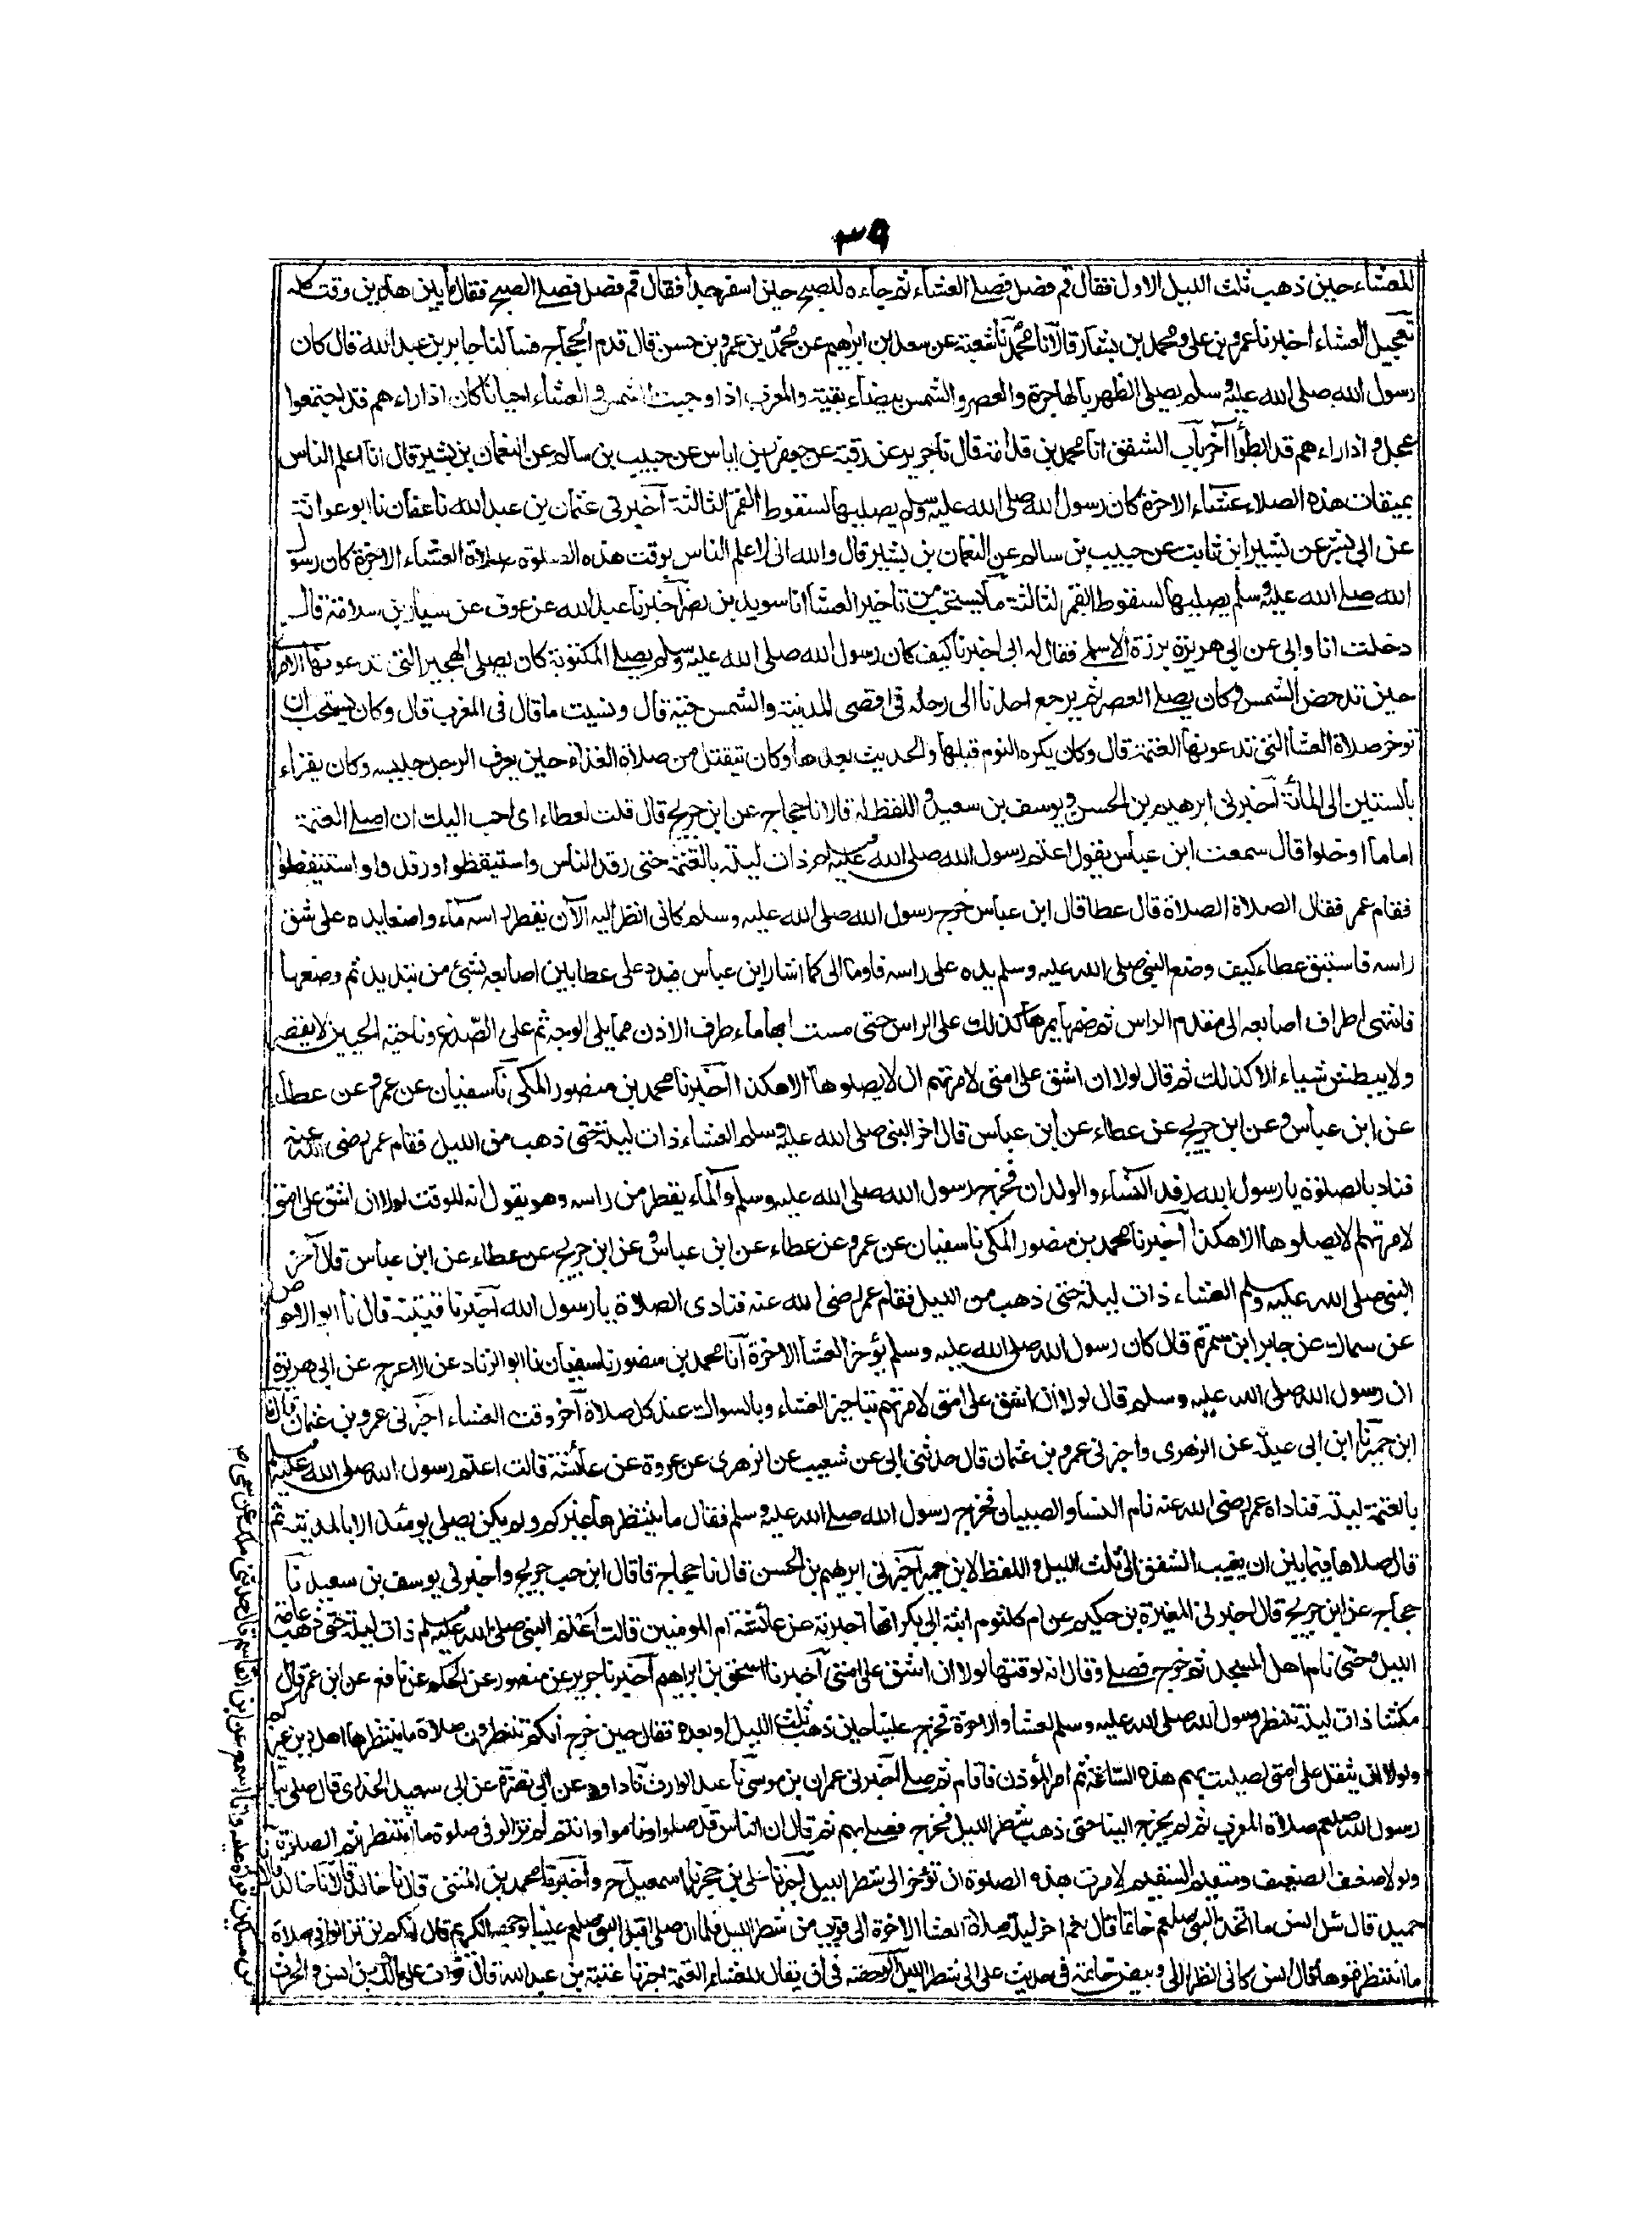 ٣٩
للعشاء حين ذهب ثلث الليل الاول فقال قم فصل فصلى العشاء ثم جاءه للصبح حين اسفر جدا فقال قم فصل فصلى الصبح فقال ما بين هذين وقت كله
تعجيل العشاء اخبرنا عمرو بن على ومحمد بن بشار قالا نا محمد نا شعبة عن سعد بن ابراهيم عن محمد بن عمرو بن حسن قال قدم الحجاج فسالنا جابر بن عبد الله قال كان
رسول الله صلى الله عليه وسلم يصلى الظهر بالهاجرة والعصر والشمس بيضاء نقية والمغرب اذا وجبت الشمس والعشاء احيانا كان اذا راءهم قد اجتمعوا
عجل واذا راءهم قد ابطؤا آخر باب الشفق انا محمد بن قدامة قال نا جرير عن رقبة عن جعفر بن اياس عن حبيب بن سالم عن النعمان بن بشير قال انا اعلم الناس
بميقات هذه الصلاء عشاء الاخرة كان رسول الله صلى الله عليه وسلم يصليها لسقوط القمر الثالثة اخبرنى عثمان بن عبد الله نا عفان نا ابو عوانة
عن ابى بشر عن بشير ابن ثابت عن حبيب بن سالم عن النعمان بن بشير قال والله انى لا علم الناس بوقت هذه الصلوة صلاة العشاء الاخرة كان رسول
الله صلى الله عليه وسلم يصليها لسقوط القمر لثالثة ما يستحب من تاخير العشا انا سويد بن نصر اخبرنا عبد الله عن عوف عن سيار بن سلامة قال
دخلت انا وابى عن ابى هريرة برزة الاسلمى فقال له ابى اخبرنا كيف كان رسول الله صلى الله عليه وسلم يصلى المكتوبة كان يصلى الهجير التى تدعونها الاولى
حين تدحض الشمس وكان يصلى العصر ثم يرجع احدنا الى رحله فى اقصى المدينة والشمس حية قال ونسيت ما قال فى المغرب قال وكان يستحب ان
توخر صلاة العشا التى تدعونها العتمة قال وكان يكره النوم قبلها والحديث بعدها وكان ينفتل من صلاة الغداة حين يعرف الرجل جليسه وكان يقراء
بالستين الى المائة اخبرنى ابرهيم بن الحسن ويوسف بن سعيد واللفظ له قالا نا حجاج عن ابن جريج قال قلت لعطاء اى احب اليك ان اصلى العتمة
اماما او خلوا قال سمعت ابن عباس يقول اعتم رسول الله صلى الله عليه وسلم ذات ليلة بالعتمة حتى رقد الناس واستيقظوا ورقدوا واستيقظوا
فقام عمر فقال الصلاة الصلاة قال عطا قال ابن عباس خرج رسول الله صلى الله عليه وسلم كانى انظر اليه الآن يقطر راسه ماء واضعا يده على شق
راسه فاستبق عطاء كيف وضع النبى صلى الله عليه وسلم يده على راسه فاومالى كما اشار ابن عباس فبدد على عطا بين اصابعه بشئ من تبديد ثم وضعها
فانتهى اطراف اصابعه الى مقدم الراس ثم ضمها يمر بها كذلك على الراس حتى مست ابهاماه طرف الاذن مما يلى الوجه ثم على الصدغ وناحية الجبين لا يقصر
ولا يبطش شياء الا كذلك ثم قال لولا ان اشق على امتى لا مرتهم ان لا يصلوها الا هكذا اخبرنا محمد بن منصور المكى نا سفيان عن عمرو عن عطاء
عن ابن عباس وعن ابن جريج عن عطاء عن ابن عباس قال اخر النبى صلى الله عليه وسلم العشاء ذات ليلة حتى ذهب من الليل فقام عمر رضى الله عنه
فناد بالصلوة يا رسول الله رقد النساء والولدان فخرج رسول الله صلى الله عليه وسلم والماء يقطر من راسه وهو يقول انه للوقت لولا ان اشق على امتى
لا مرتهم لا يصلوها الا هكذا اخبرنا محمد بن منصور المكى نا سفيان عن عمرو عن عطاء عن ابن عباس وعن ابن جريج عن عطاء عن ابن عباس قال آخر
النبى صلى الله عليه وسلم العشاء ذات ليلة حتى ذهب من الليل فقام عمر رضى الله عنه فنادى الصلاة يا رسول الله اخبرنا قتيبة قال نا ابو الاحوص
عن سماك عن جابر ابن سمرة قال كان رسول الله صلى الله عليه وسلم يؤخر العشا الاخرة انا محمد بن منصور نا سفيان نا ابو الزناد عن الاعرج عن ابى هريرة
ان رسول الله صلى الله عليه وسلم قال لولا ان اشق على امتى لا مرتهم بتاخير العشاء وبالسواك عند كل صلاة آخر وقت العشاء اخبرنى عمرو بن عثمان
ابن حمير نا ابن ابى عبلة عن الزهرى واخبرنى عمرو بن عثمان قال حدثنى ابى عن شعيب عن الزهرى عن عروة عن عائشة قالت اعتم رسول الله صلى الله عليه وسلم
بالعتمة ليلة فناداه عمر رضى الله عنه نام النسا والصبيان فخرج رسول الله صلى الله عليه وسلم فقال ما ينتظرها غيركم ولم يكن يصلى يومئذ الا بالمدينة ثم
قال صلاها فيما بين ان يغيب الشفق الى ثلث الليل واللفظ لابن حمير اخبرنى ابرهيم بن الحسن قال نا حجاج قا قال ابن حب جريج واخبرنى يوسف بن سعيد نا
حجاج عن ابن جريج قال اخبرنى المغيرة بن حكيم عن ام كلثوم ابنة ابى بكر انها اخبرته عن عائشة ام المومنين قالت اعتم النبى صلى الله عليه وسلم ذات ليلة حتى ذهب عامة
الليل وحتى نام اهل المسجد ثم خرج فصلى وقال انه لوقتها لولا ان اشق على امتى اخبرنا اسحق بن ابراهيم اخبرنا جرير عن منصور عن الحكم عن نافع عن ابن عمر قال
مكثنا ذات ليلة ننتظر رسول الله صلى الله عليه وسلم لعشاء الاخرة فخرج علينا حين ذهب ثلث الليل او بعده فقال حين خرج انكم تنتظرون صلاة ما ينتظرها اهل دين غيركم
ولولا ان يثقل على امتى لصليت بهم هذه الساعة ثم امر المؤذن فاقام ثم صلى اخبرنى عمران بن موسى نا عبد الوارث نا داود عن ابى نضرة عن ابى سعيد الخدرى قال صلى بنا
رسول الله صلعم صلاة المغرب ثم لم يخرج الينا حتى ذهب شطر الليل فخرج فصلى بهم ثم قال ان الناس قد صلوا وناموا وانتم لم تزالوا فى صلوة ما انتظرتم الصلوة
ولولا ضعف الضعيف وسقم السقيم لامرت بهذه الصلوة ان تؤخر الى شطر الليل اخبرنا على بن حجر نا اسمعيل ح واخبرنا محمد بن المثنى قال نا خالد قالا نا
حميد قال سئل انس ما اتخذ النبى صلعم خاتما قال نعم اخر ليلة صلاة العشا الاخرة الى قريب من شطر الليل فلما ان صلى اقبل النبى صلعم علينا بوجهه الكريم قال انكم لن تزالوا فى صلاة
ما انتظرتموها قال انس كانى انظر الى وبيض خاتمه فى حديث على الى شطر الليل الرخصة فى ان يقال للعشاء العتمة اخبرنا عتبة بن عبد الله قال قرات على مالك بن انس والحرث
بن مسكين قراءة عليه وانا اسمع عن ابن القاسم قال حدثنى مالك عن سمى ح